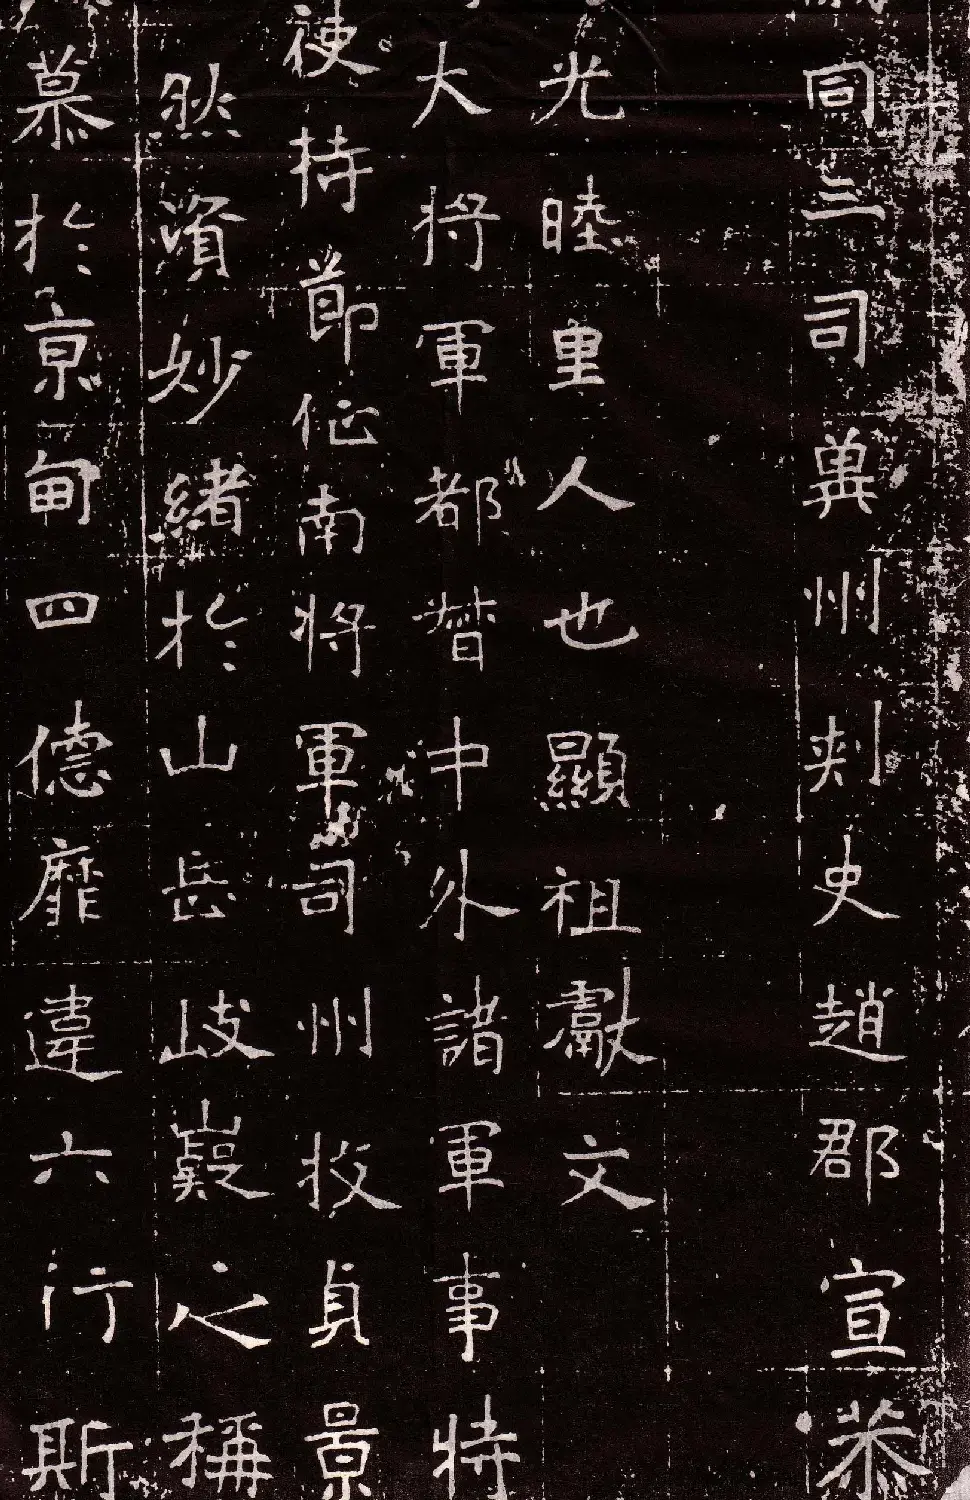 同三司冀州刾史趙郡宣恭
光睦里人也顯祖獻文
大將軍都督中外諸軍事特
使持節征南將軍司州牧貞景
然資妙緒於山岳岐嶷之稱
慕於京甸四德靡違六行斯